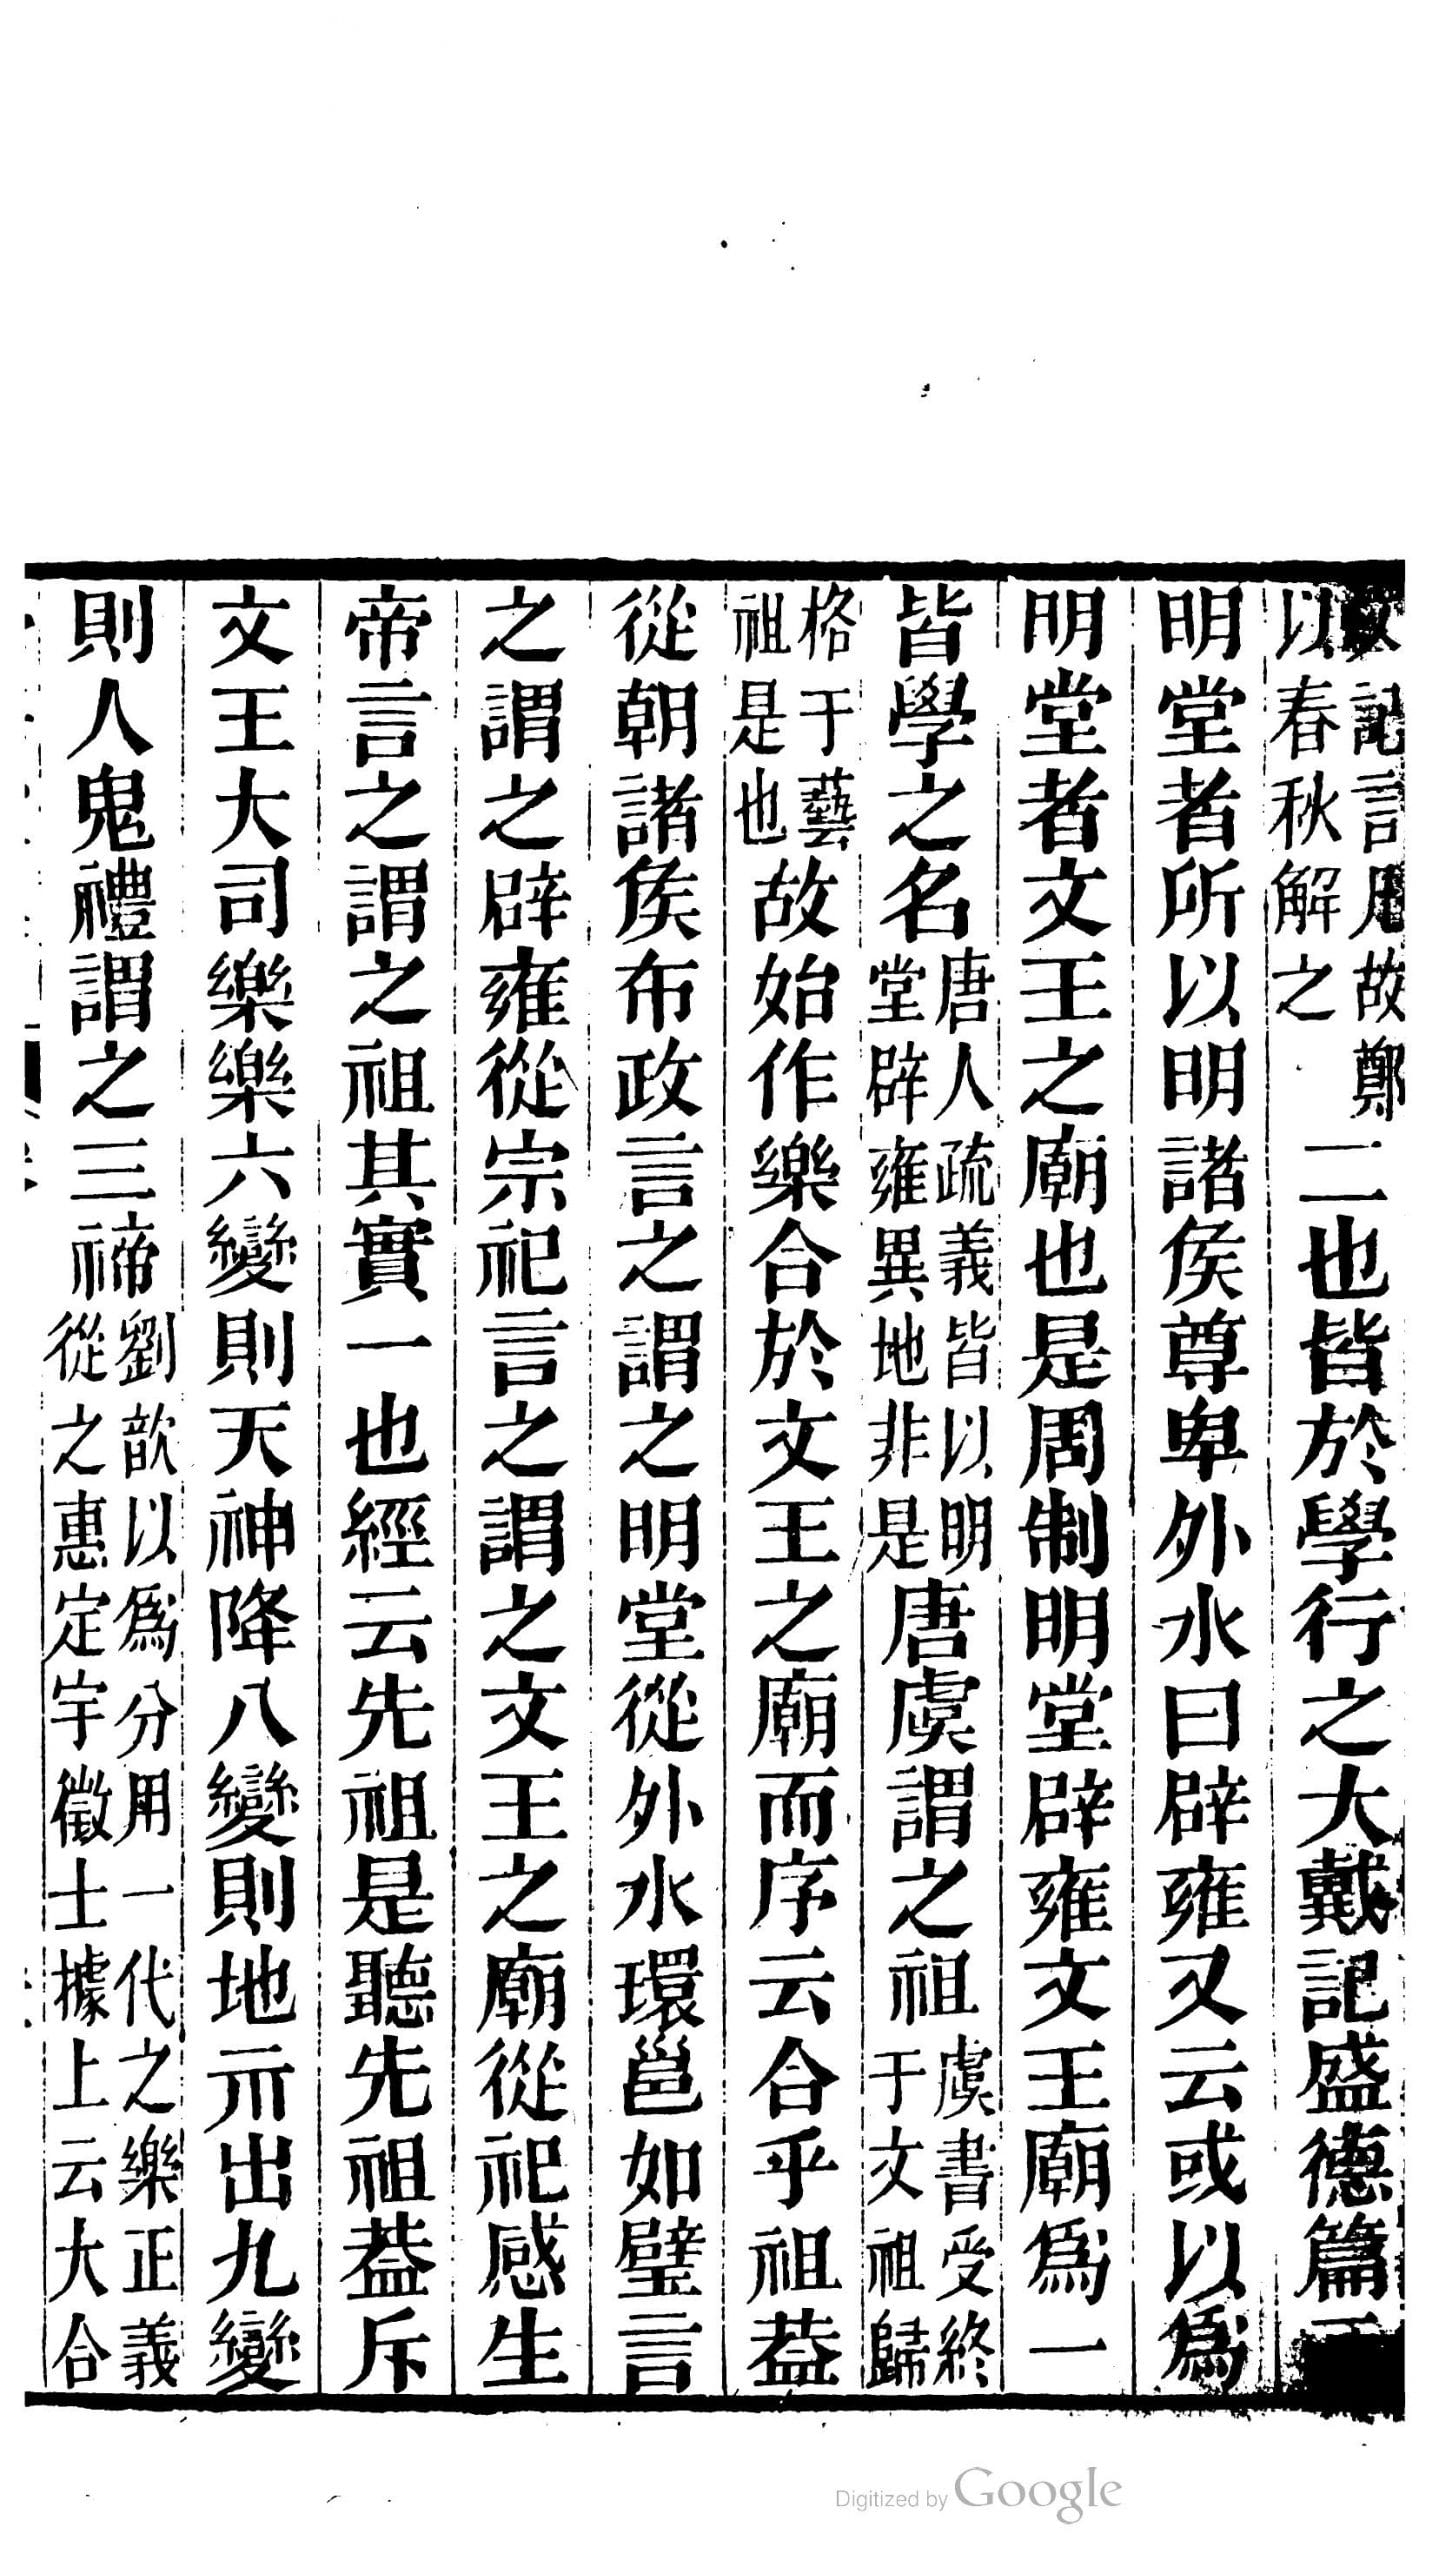 記言凡故鄭以春秋解之二也皆於學行之大戴記盛德篇
明堂者所以明諸侯尊卑外水曰辟雍又云或以爲
明堂者文王之廟也是周制明堂辟雍文王廟爲一
皆學之名唐人疏義皆以明堂辟雍異地非是唐虞謂之祖虞書受終于文祖歸
格于藝祖是也故始作樂合於文王之廟而序云合乎祖葢
從朝諸侯布政言之謂之明堂從外水環邕如璧言
之謂之辟雍從宗祀言之謂之文王之廟從祀感生
帝言之謂之祖其實一也經云先祖是聽先祖葢斥
文王大司樂樂六變則天神降八變則地示出九變
則人鬼禮謂之三禘劉歆以爲分用一代之樂正義從之惠定宇徵士據上云大合
Digitized by Google